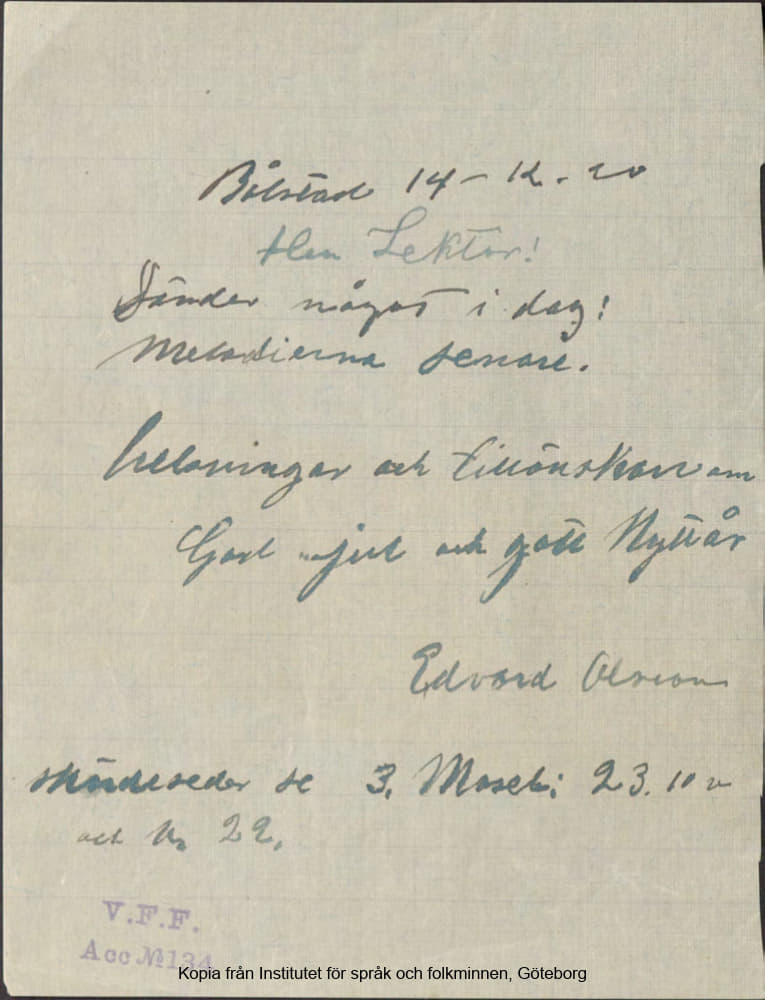 Bölstad 14 - 12. - 20
Herr Lektor!
Sänder något i dag!
Melodierna senare.
Helsningar och tillönskan om
God jul och gott Nytt år
Edvard Olsson
skördeseder se 3. Moseb: 23. 10 v
och v. 22.
V.F.F.
Acc № 134
Kopia från Institutet för språk och folkminnen, Göteborg